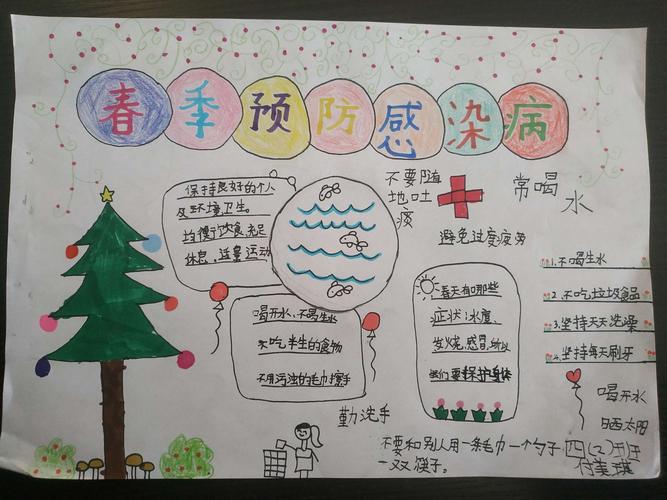 春季预防感染病
保持良好的个人
及环境卫生。
均衡饮食充足
休息,适量运动
不要随
地吐
痰
常喝
水
避免过度疲劳
喝开水、不喝生水
不吃半生的食物
不用污浊的毛巾擦手
春天有哪些
症状:水痘、
发烧,感冒,所以
我们要保护身体
1.不喝生水
2.不吃垃圾食品
3.坚持天天洗澡
4.坚持每天刷牙
喝开水
晒太阳
勤洗手
不要和别人用一条毛巾一个勺子
一双筷子。
四(二)班
付美琪